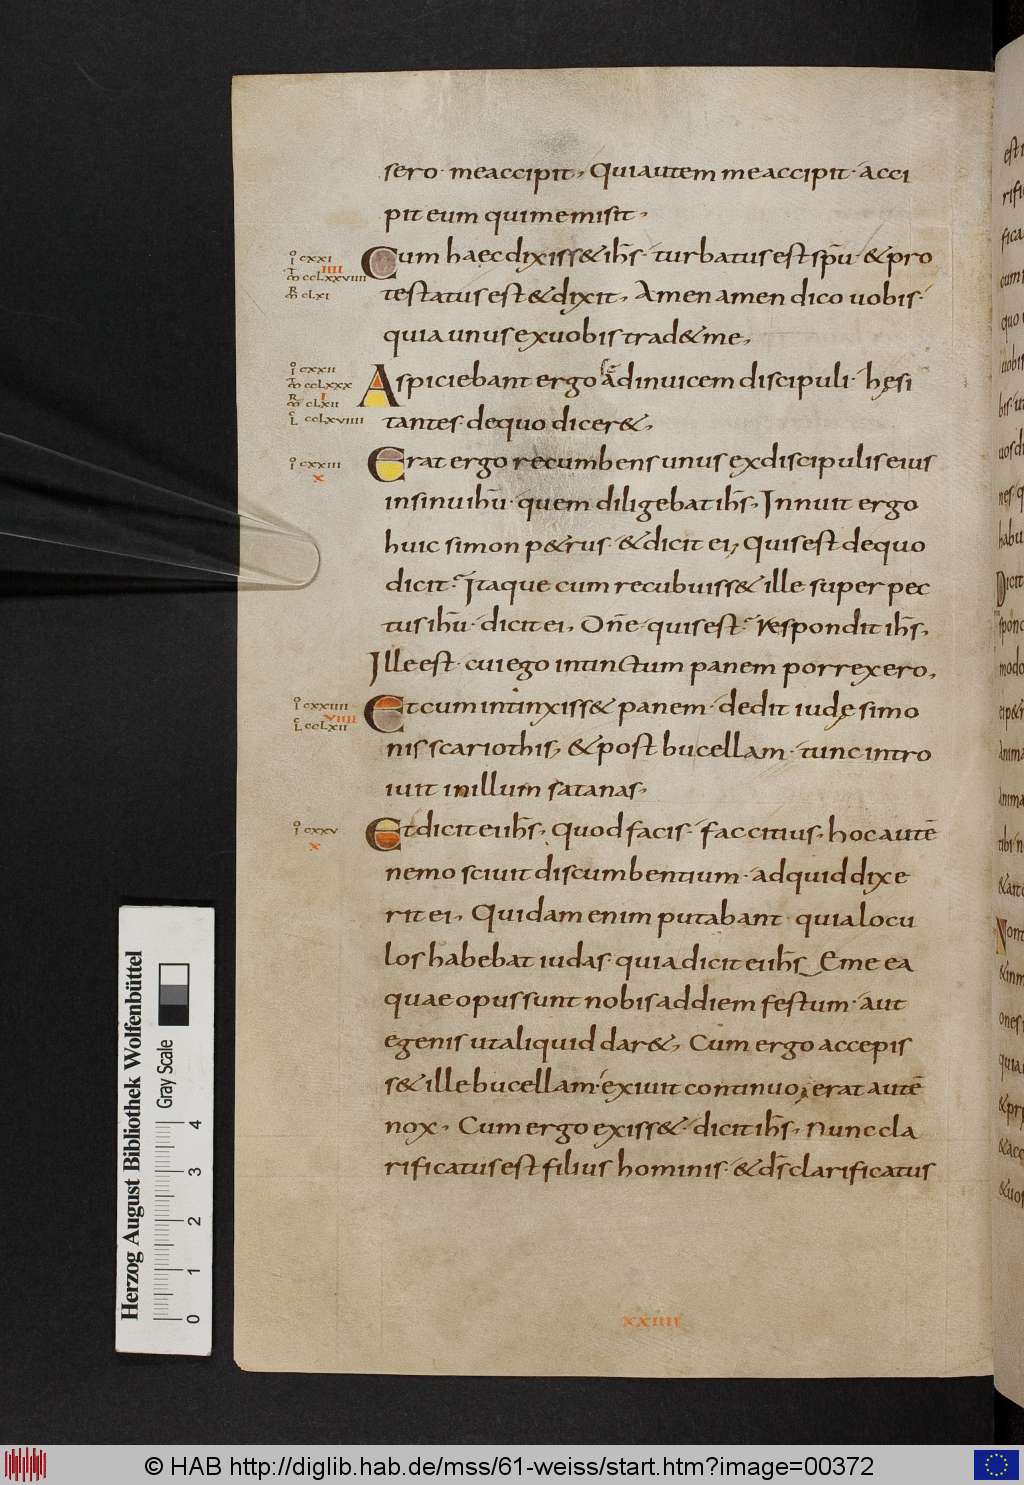 sero· me accipit, Qui autem me accipit· acci
pit eum qui me misit,
IO CXXI
IIII
MT CCLXXVIIII
MR CLXI
Cum haec dixiss& ihs̄· turbatus est spū· & pro
testatus est & dixit, Amen amen dico uobis·
quia unus ex uobis trad& me,
IO CXXII
MT CCLXXX
I
MR CLXII
L CCLXVIIII
Aspiciebant ergo ad inuicem discipuli· hęsi
tantes· de quo dicer&,
IO CXXIII
X
Erat ergo recumbens unus ex discipulis eius
in sinu ihū· quem diligebat ihs̄, Innuit ergo
huic simon p&rus· & dicit ei, Quis est de quo
dicit? Itaque cum recubuiss& ille super pec
tus ihū· dicit ei, Dn̄e· quis est? Respondit ihs̄,
Ille est· cui ego intinctum panem porrexero,
IO CXXIIII
VIIII
L CCLXII
Et cum intinxiss& panem· dedit iudę simo
nis scariothis, & post bucellam· tunc intro
iuit in illum satanas,
IO CXXV
X
Et dicit ei ihs̄, Quod facis· fac citius, hoc autē
nemo sciuit discumbentium· ad quid dixe
rit ei, Quidam enim putabant· quia locu
los habebat iudas· quia dicit ei ihs̄ Eme ea
quae opus sunt nobis ad diem festum· aut
egenis ut aliquid dar&, Cum ergo accepis
s& ille bucellam· exiuit continuo, erat autē
nox, Cum ergo exiss&· dicit ihs̄, Nunc cla
rificatus est filius hominis· & ds̄ clarificatus
XXIIII
Herzog August Bibliothek Wolfenbüttel
Gray Scale
0 1 2 3 4
© HAB http://diglib.hab.de/mss/61-weiss/start.htm?image=00372